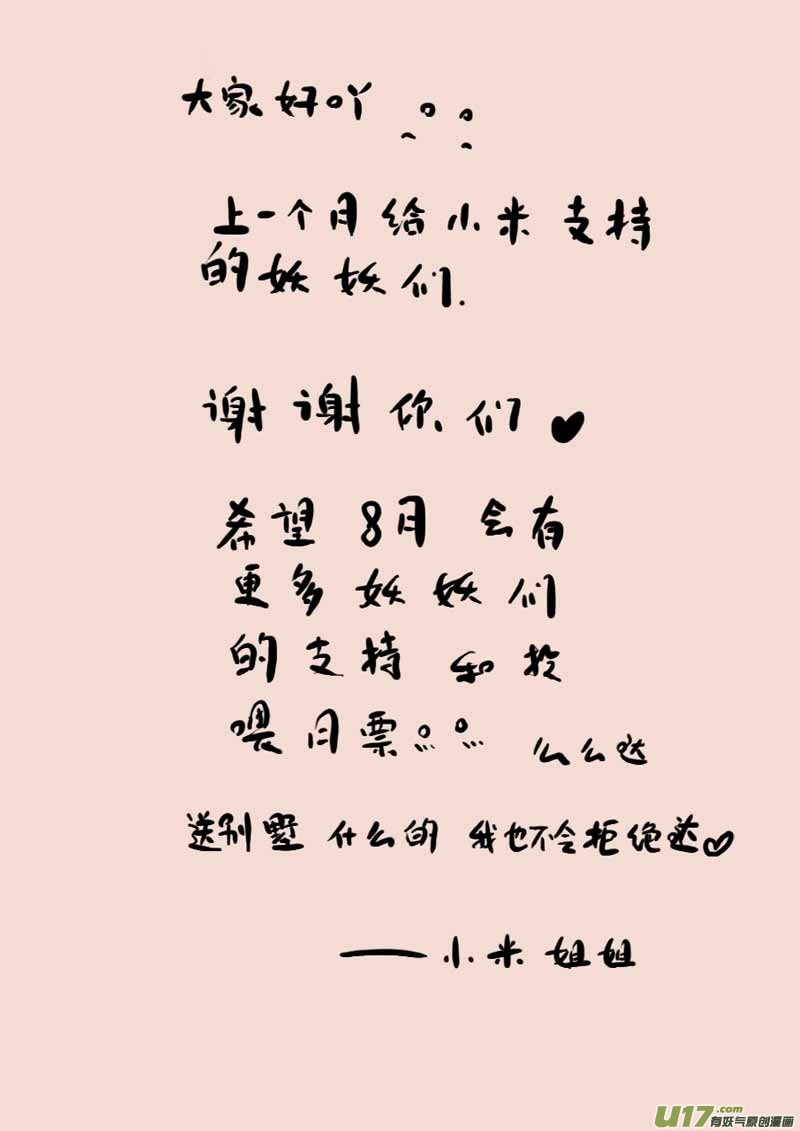 大家好吖
上一个月给小米支持
的妖妖们.
谢谢你们♥
希望8月会有
更多妖妖们
的支持和投
喂月票 么么哒
送别墅什么的 我也不会拒绝哒♡
——小米姐姐
U17.com
有妖气原创漫画